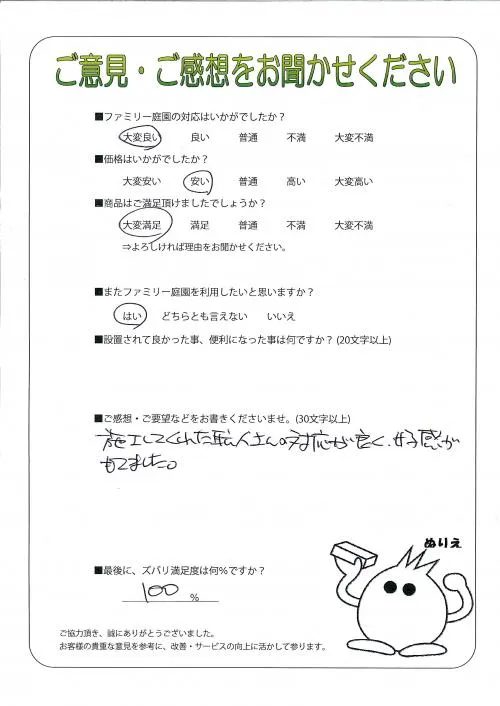 ご意見・ご感想をお聞かせください
■ファミリー庭園の対応はいかがでしたか?
大変良い 良い 普通 不満 大変不満
■価格はいかがでしたか?
大変安い 安い 普通 高い 大変高い
■商品はご満足頂けましたでしょうか?
大変満足 満足 普通 不満 大変不満
⇒よろしければ理由をお聞かせください。
■またファミリー庭園を利用したいと思いますか?
はい どちらとも言えない いいえ
■設置されて良かった事、便利になった事は何ですか? (20文字以上)
■ご感想・ご要望などをお書きくださいませ。(30文字以上)
施工してくれた職人さんの対応が良く、好感が
もてました。
ぬりえ
■最後に、ズバリ満足度は何%ですか?
100 %
ご協力頂き、誠にありがとうございました。
お客様の貴重な意見を参考に、改善・サービスの向上に活かして参ります。